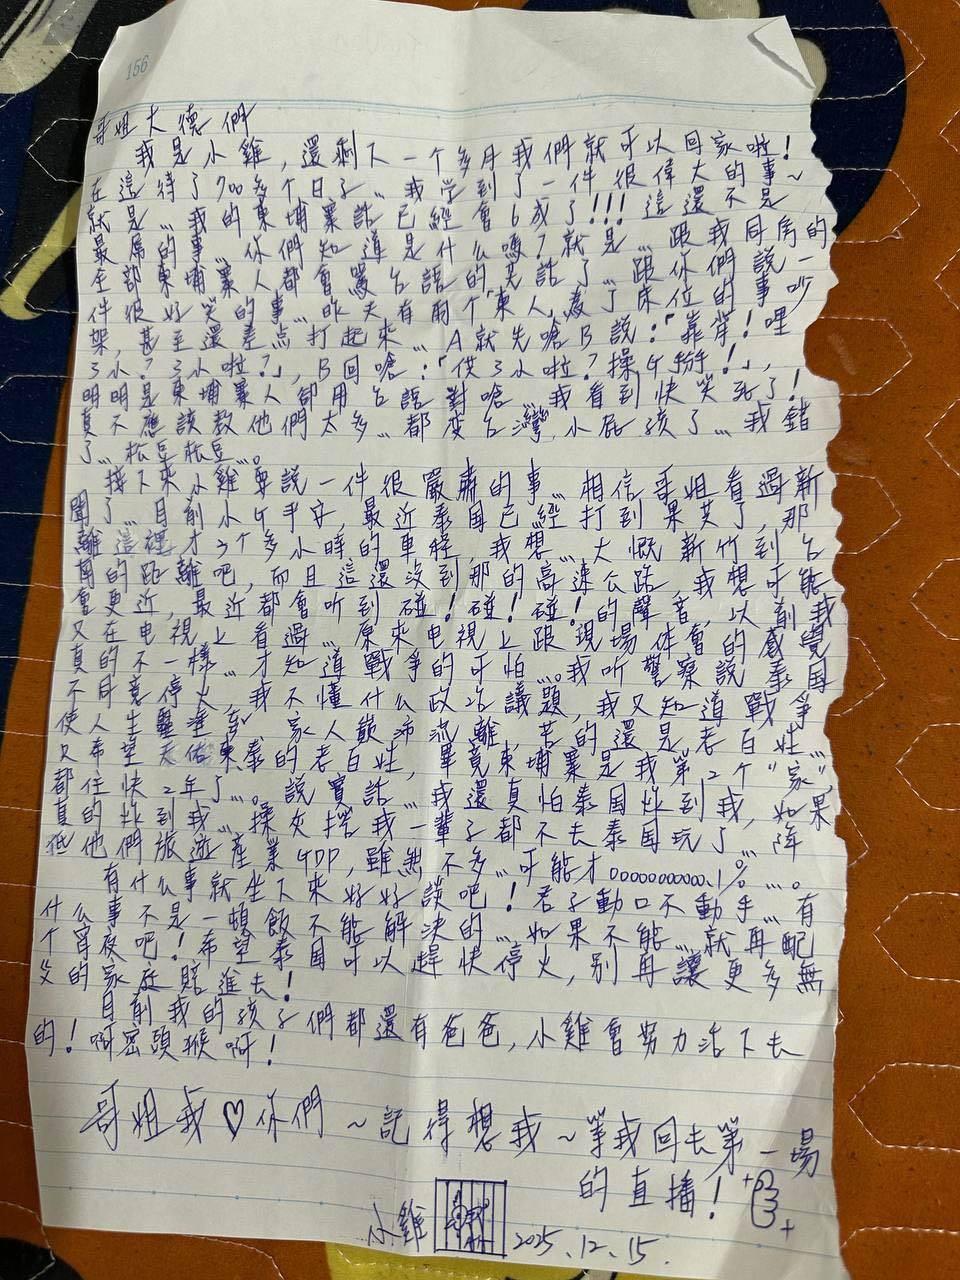 156
哥姐大德們
我是小雞，還剩下一个多月我們就可以回家啦！
在這待了700多个日子…我学到了一件很偉大的事~
就是…我的柬埔寨話已經會6成了!!!這還不是
最屌的事…你們知道是什么嗎?就是…跟我同房的
全部柬埔寨人都會罵台語的茓話了…跟你們說一
件很好笑的事…昨天有兩个「柬人」為了床位的事吵
架，甚至還差点打起來…A就先嗆B說：「靠背！哩
3小?3小啦?」，B回嗆：「供3小啦?操G掰！」，
明明是柬埔寨人卻用台語對嗆…我看到快笑死了！
真不應該教他們太多…都变台灣小屁孩了…我錯
了…松豆松豆…。
接下來小雞要說一件很嚴肅的事…相信哥姐看過新
聞了…目前小G平安，最近泰国已經打到果芡了，那
離這裡才3个多小時的車程，我想…大慨新竹到台
南的距離吧，而且這還沒到那的高速公路，我想可能
會更近，最近都會听到碰！碰！碰！的聲音，以前我
又在电視上看過…原來电視上跟現場体會的感覺
真的不一樣…才知道戰爭的可怕…。我听警察說泰国
不月意停火，我不懂什么政治議題，我又知道戰爭
使人生靈塗炭，家人顛沛流離，苦的還是老百姓…
又希望天佑柬泰的老百姓，畢竟柬埔寨是我第2个"家"，
都住快2年了…。說實話…我還真怕泰国炸到我，如果
真的炸到我…操女搾我一輩子都不去泰国玩了…降
低他們旅遊產業GDP，雖然不多…可能才0.00000000001%…。
有什么事就坐下來好好談吧！君子動口不動手…有
什么事不是一頓飯不能解決的…如果不能…就再配
个宵夜吧！希望泰国可以趕快停火，別再讓更多無
父的家庭賠進去！
目前我的孩子們都還有爸爸，小雞會努力活下去
的！啊密頭猴啊！
哥姐我♡你們~記得想我~等我回去第一場
的直播！
小雞 2025.12.15.